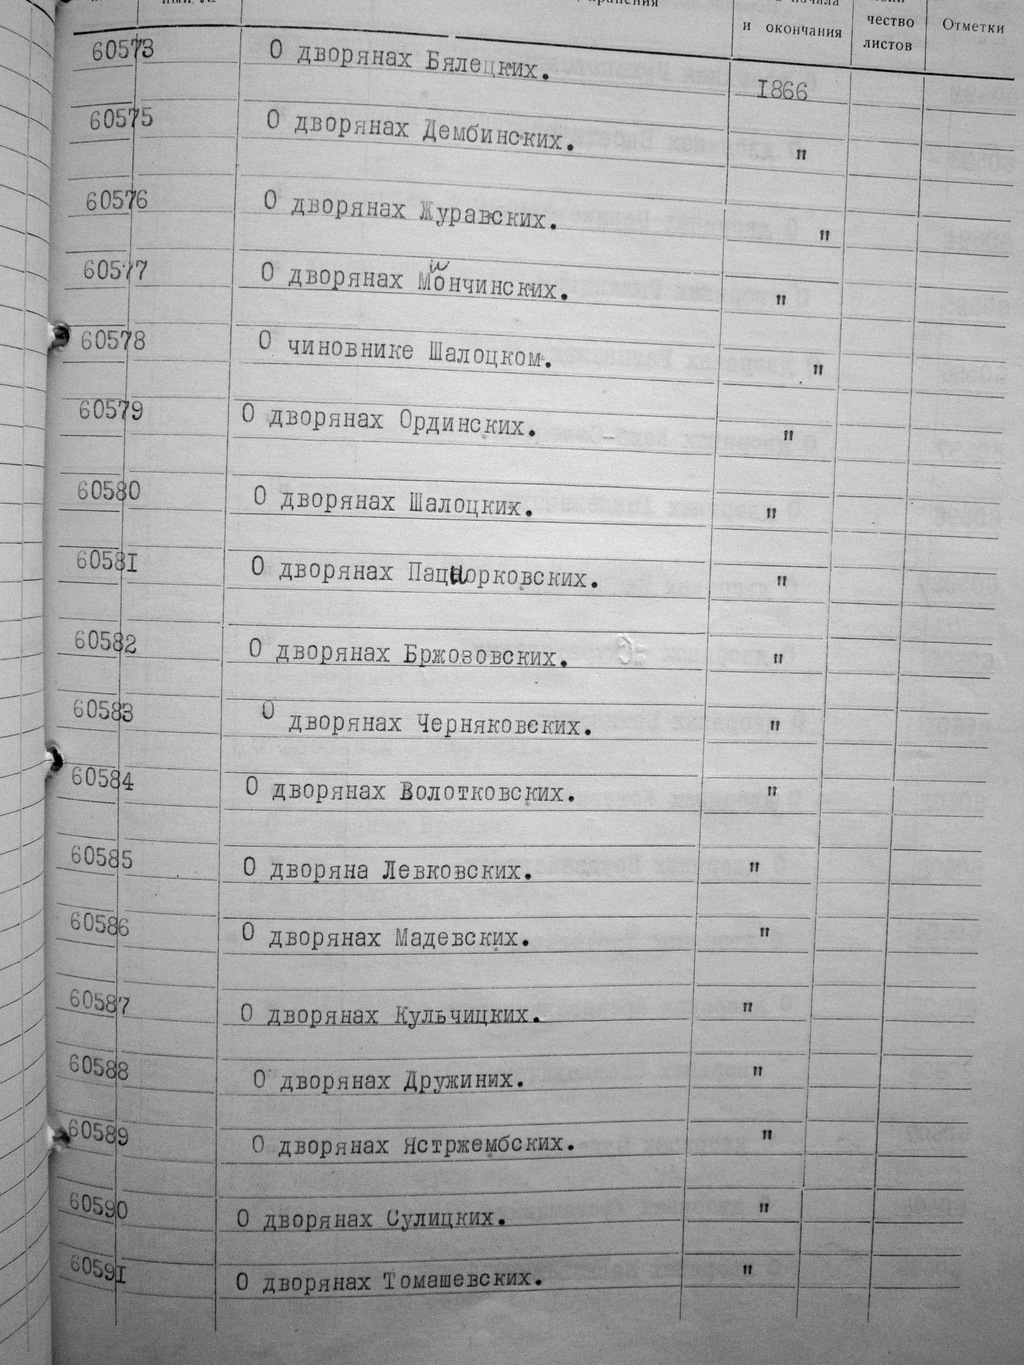 и окончания
чество
листов
Отметки
60573 О дворянах Бялецких. 1866
60575 О дворянах Дембинских. "
60576 О дворянах Журавских. "
60577 О дворянах Мончинских. "
60578 О чиновнике Шалоцком. "
60579 О дворянах Ординских. "
60580 О дворянах Шалоцких. "
60581 О дворянах Пациорковских. "
60582 О дворянах Бржозовских. "
60583 О дворянах Черняковских. "
60584 О дворянах Волотковских. "
60585 О дворяна Левковских. "
60586 О дворянах Мадевских. "
60587 О дворянах Кульчицких. "
60588 О дворянах Дружиних. "
60589 О дворянах Ястржембских. "
60590 О дворянах Сулицких. "
60591 О дворянах Томашевских. "